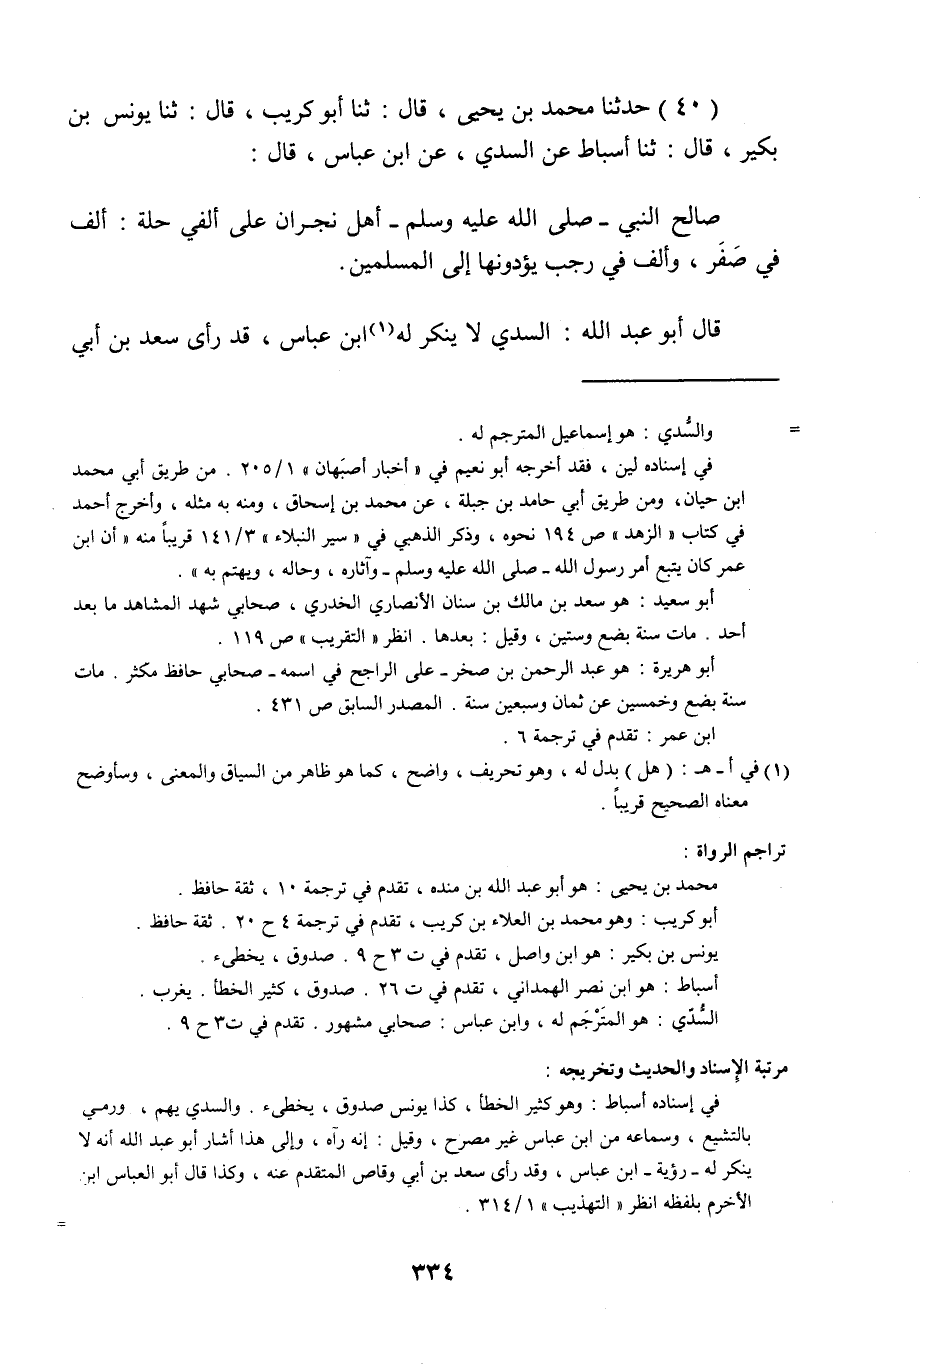 ( ٤٠ ) حدثنا محمد بن يحيى ، قال : ثنا أبو كريب ، قال : ثنا يونس بن
بكير ، قال : ثنا أسباط عن السدي ، عن ابن عباس ، قال :
صالح النبي ـ صلى الله عليه وسلم ـ أهل نجران على ألفي حلة : ألف
في صَفَر ، وألف في رجب يؤدونها إلى المسلمين .
قال أبو عبد الله : السدي لا ينكر له(١) ابن عباس ، قد رأى سعد بن أبي
= والسُّدي : هو إسماعيل المترجم له .
في إسناده لين ، فقد أخرجه أبو نعيم في « أخبار أصبَهان » ٢٠٥/١ . من طريق أبي محمد
ابن حيان، ومن طريق أبي حامد بن جبلة ، عن محمد بن إسحاق ، ومنه به مثله ، وأخرج أحمد
في كتاب « الزهد » ص ١٩٤ نحوه ، وذكر الذهبي في « سير النبلاء » ١٤١/٣ قريباً منه « أن ابن
عمر كان يتبع أمر رسول الله ـ صلى الله عليه وسلم ـ وآثاره ، وحاله ، ويهتم به » .
أبو سعيد : هو سعد بن مالك بن سنان الأنصاري الخدري ، صحابي شهد المشاهد ما بعد
أحد . مات سنة بضع وستين ، وقيل : بعدها . انظر « التقريب » ص ١١٩ .
أبو هريرة : هو عبد الرحمن بن صخر ـ على الراجح في اسمه ـ صحابي حافظ مكثر . مات
سنة بضع وخمسين عن ثمان وسبعين سنة . المصدر السابق ص ٤٣١ .
ابن عمر : تقدم في ترجمة ٦ .
(١) في أ ـ هـ : ( هل ) بدل له ، وهو تحريف ، واضح ، كما هو ظاهر من السياق والمعنى ، وسأوضح
معناه الصحيح قريباً .
تراجم الرواة :
محمد بن يحيى : هو أبو عبد الله بن منده ، تقدم في ترجمة ١٠ ، ثقة حافظ .
أبو كريب : وهو محمد بن العلاء بن كريب ، تقدم في ترجمة ٤ ح ٢٠ . ثقة حافظ .
يونس بن بكير : هو ابن واصل ، تقدم في ت ٣ ح ٩ . صدوق ، يخطىء .
أسباط : هو ابن نصر الهمداني ، تقدم في ت ٢٦ . صدوق ، كثير الخطأ . يغرب .
السُّدّي : هو المتَرْجَم له ، وابن عباس : صحابي مشهور . تقدم في ت٣ ح ٩ .
مرتبة الإسناد والحديث وتخريجه :
في إسناده أسباط : وهو كثير الخطأ ، كذا يونس صدوق ، يخطىء . والسدي يهم ، ورمي
بالتشيع ، وسماعه من ابن عباس غير مصرح ، وقيل : إنه رآه ، وإلى هذا أشار أبو عبد الله أنه لا
ينكر له ـ رؤية ـ ابن عباس ، وقد رأى سعد بن أبي وقاص المتقدم عنه ، وكذا قال أبو العباس ابن
الأخرم بلفظه انظر « التهذيب » ٣١٤/١ .
=
٣٣٤